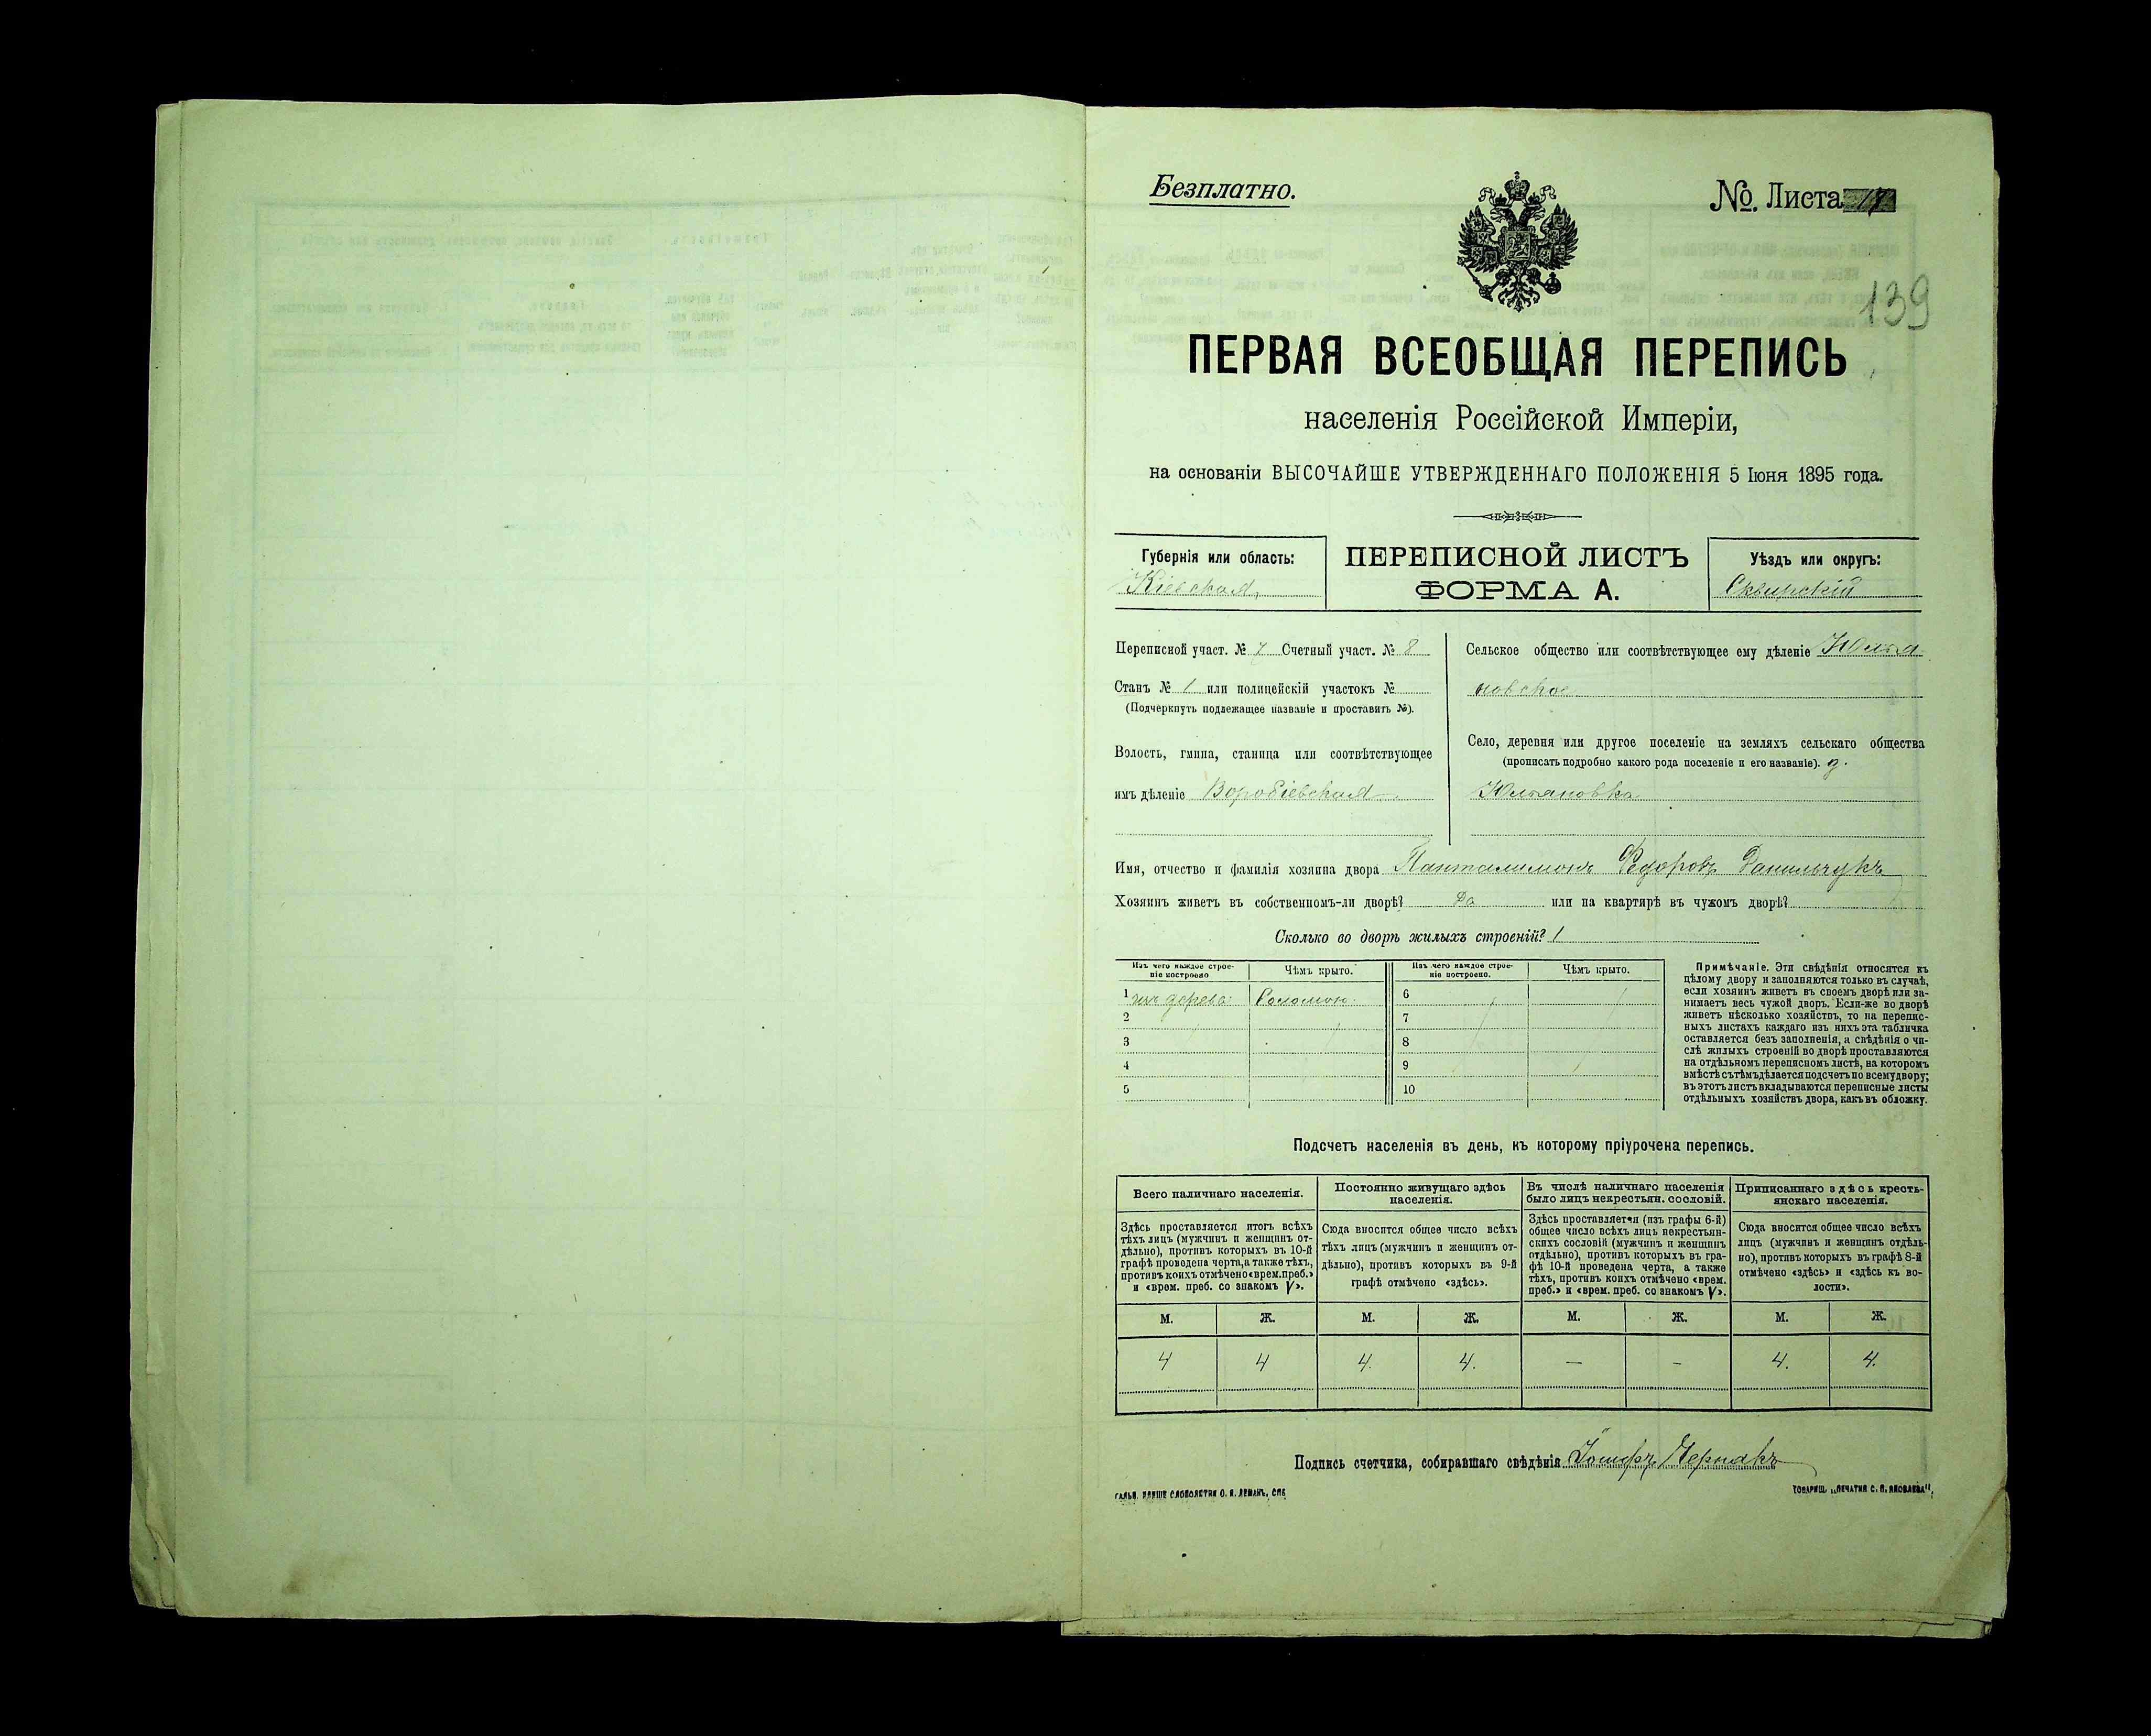 Безплатно.
№. Листа
139
ПЕРВАЯ ВСЕОБЩАЯ ПЕРЕПИСЬ
населенія Россійской Имперіи,
на основаніи ВЫСОЧАЙШЕ УТВЕРЖДЕННАГО ПОЛОЖЕНІЯ 5 Іюня 1895 года.
Губернія или область:
Кіевская
ПЕРЕПИСНОЙ ЛИСТЪ
ФОРМА А.
Уѣздъ или округъ:
Сквирскій
Переписной участ. № 7 Счетный участ. № 8
Станъ № 1 или полицейскій участокъ №
(Подчеркнуть подлежащее названіе и проставить №).
Волость, гмина, станица или соотвѣтствующее
имъ дѣленіе Воробіевская
Сельское общество или соотвѣтствующее ему дѣленіе Юлья
новское
Село, деревня или другое поселеніе на земляхъ сельскаго общества
(прописать подробно какого рода поселеніе и его названіе). д.
Юльяновка
Имя, отчество и фамилія хозяина двора Панталимонъ Федоровъ Данильчукъ
Хозяинъ живетъ въ собственномъ-ли дворѣ? Да или на квартирѣ въ чужомъ дворѣ?
Сколько во дворѣ жилыхъ строеній? 1
Изъ чего каждое строе-
ніе построено
Чѣмъ крыто.
Изъ чего каждое строе-
ніе построено.
Чѣмъ крыто.
1 изъ дерева Соломою 6
2 7
3 8
4 9
5 10
Примѣчаніе. Эти свѣдѣнія относятся къ
цѣлому двору и заполняются только въ случаѣ,
если хозяинъ живетъ въ своемъ дворѣ или за-
нимаетъ весь чужой дворъ. Если-же во дворѣ
живетъ нѣсколько хозяйствъ, то на перепис-
ныхъ листахъ каждаго изъ нихъ эта табличка
оставляется безъ заполненія, а свѣдѣнія о чи-
слѣ жилыхъ строеній во дворѣ проставляются
на отдѣльномъ переписномъ листѣ, на которомъ
вмѣстѣ съ тѣмъ дѣлается подсчетъ по всему двору;
въ этотъ листъ вкладываются переписные листы
отдѣльныхъ хозяйствъ двора, какъ въ обложку.
Подсчетъ населенія въ день, къ которому пріурочена перепись.
Всего наличнаго населенія.
Здѣсь проставляется итогъ всѣхъ
тѣхъ лицъ (мужчинъ и женщинъ от-
дѣльно), противъ которыхъ въ 10-й
графѣ проведена черта, а также тѣхъ,
противъ коихъ отмѣчено «врем. преб.»
и «врем. преб. со знакомъ V».
Постоянно живущаго здѣсь
населенія.
Сюда вносится общее число всѣхъ
тѣхъ лицъ (мужчинъ и женщинъ от-
дѣльно), противъ которыхъ въ 9-й
графѣ отмѣчено «здѣсь».
Въ числѣ наличнаго населенія
было лицъ некрестьян. сословій.
Здѣсь проставляется (изъ графы 6-й)
общее число всѣхъ лицъ некрестьян-
скихъ сословій (мужчинъ и женщинъ
отдѣльно), противъ которыхъ въ гра-
фѣ 10-й проведена черта, а также
тѣхъ, противъ коихъ отмѣчено «врем.
преб.» и «врем. преб. со знакомъ V».
Приписаннаго здѣсь кресть-
янскаго населенія.
Сюда вносится общее число всѣхъ
лицъ (мужчинъ и женщинъ отдѣль-
но), противъ которыхъ въ графѣ 8-й
отмѣчено «здѣсь» и «здѣсь къ во-
лости».
М. Ж. М. Ж. М. Ж. М. Ж.
4 4 4. 4. — — 4. 4.
Подпись счетчика, собиравшаго свѣдѣнія Іосифъ Чернякъ
ТОВАРИЩ. „ПЕЧАТНЯ С. П. ЯКОВЛЕВА".